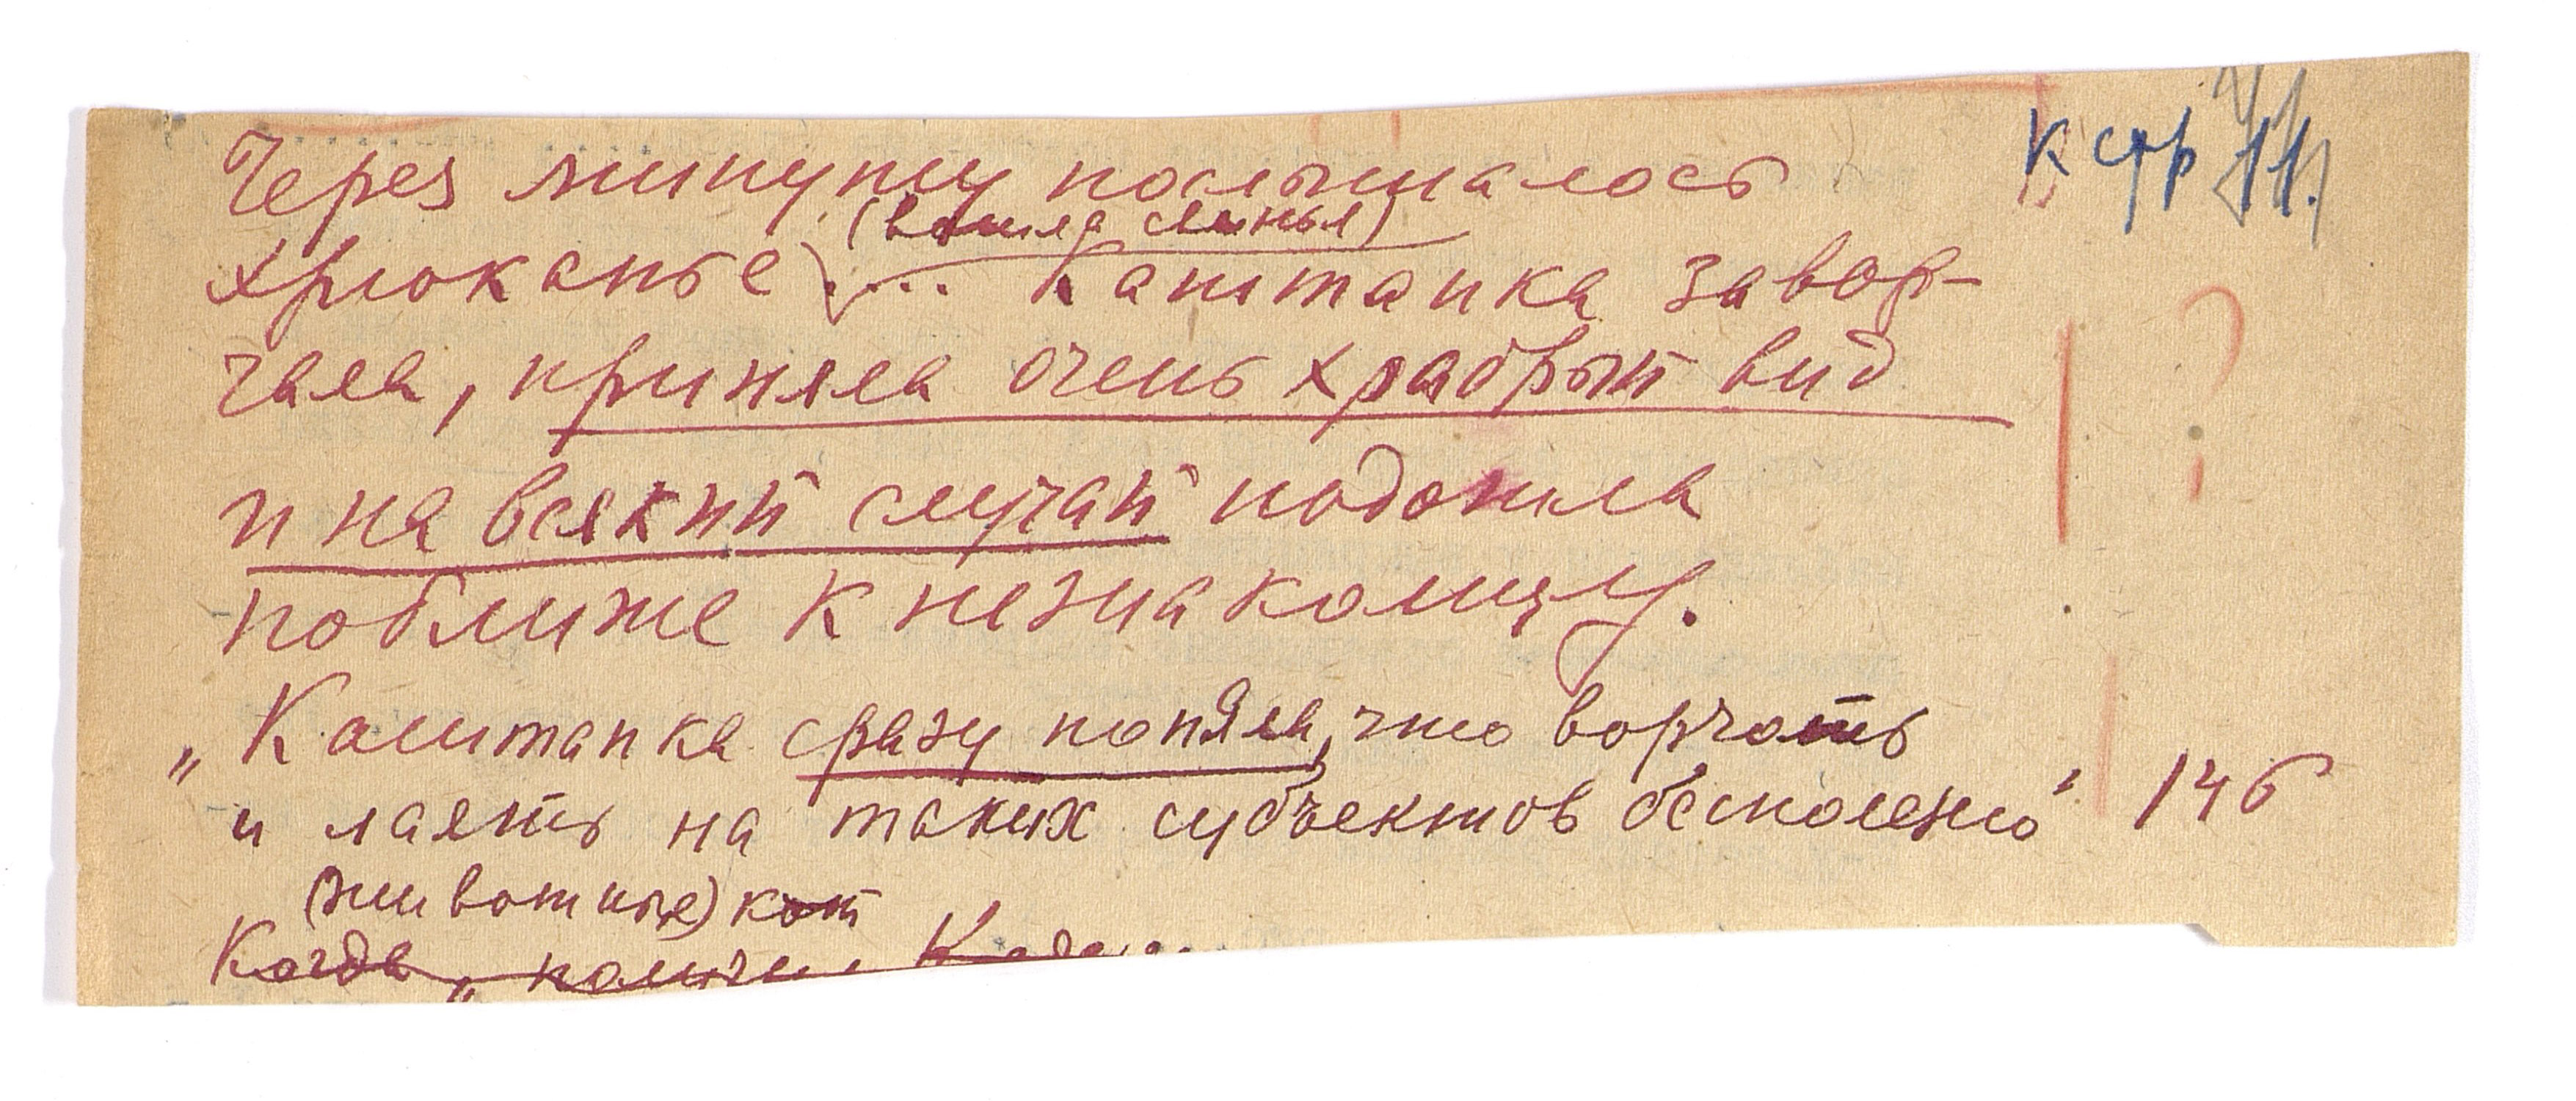 к стр 11.
Через минуту послышалось
(вошла свинья)
хрюканье ... Каштанка завор-
чала, приняла очень храбрый вид
?
и на всякий случай подошла
поближе к незнакомцу.
„Каштанка сразу поняла, что ворчать
и лаять на таких субъектов бесполезно" 146
(животные) кот
Когда